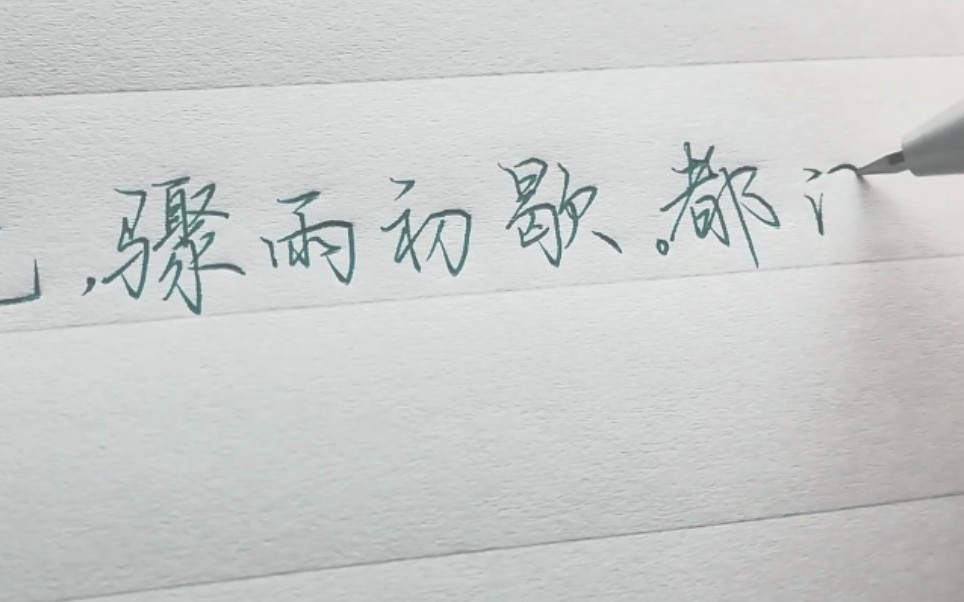 ,骤雨初歇。都